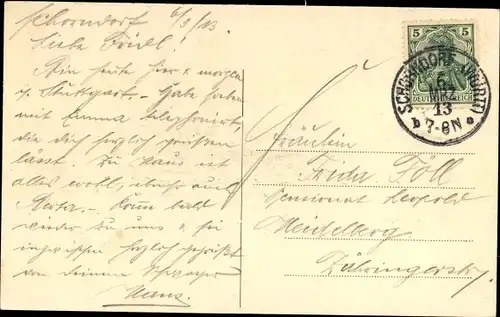 Schorndorf 6/3/13
Liebe Friedl!
Bin heute hier & morgen
i/ Stuttgart. Habe soeben
mit Emma telephoniert,
die dich herzlich grüssen
lässt. Zu Haus ist
alles wohl, auch
Komm bald
wieder zu uns & sei
inzwischen herzlich gegrüßt
von deinem Schwager
Hans.
5 5
DEUTSCHES REICH
SCHORNDORF (WÜRTT)
6
MRZ
13
b 7-8N
Fräulein
Frida Föll
Pensionat Leopold
Heidelberg
Zähringerstr.